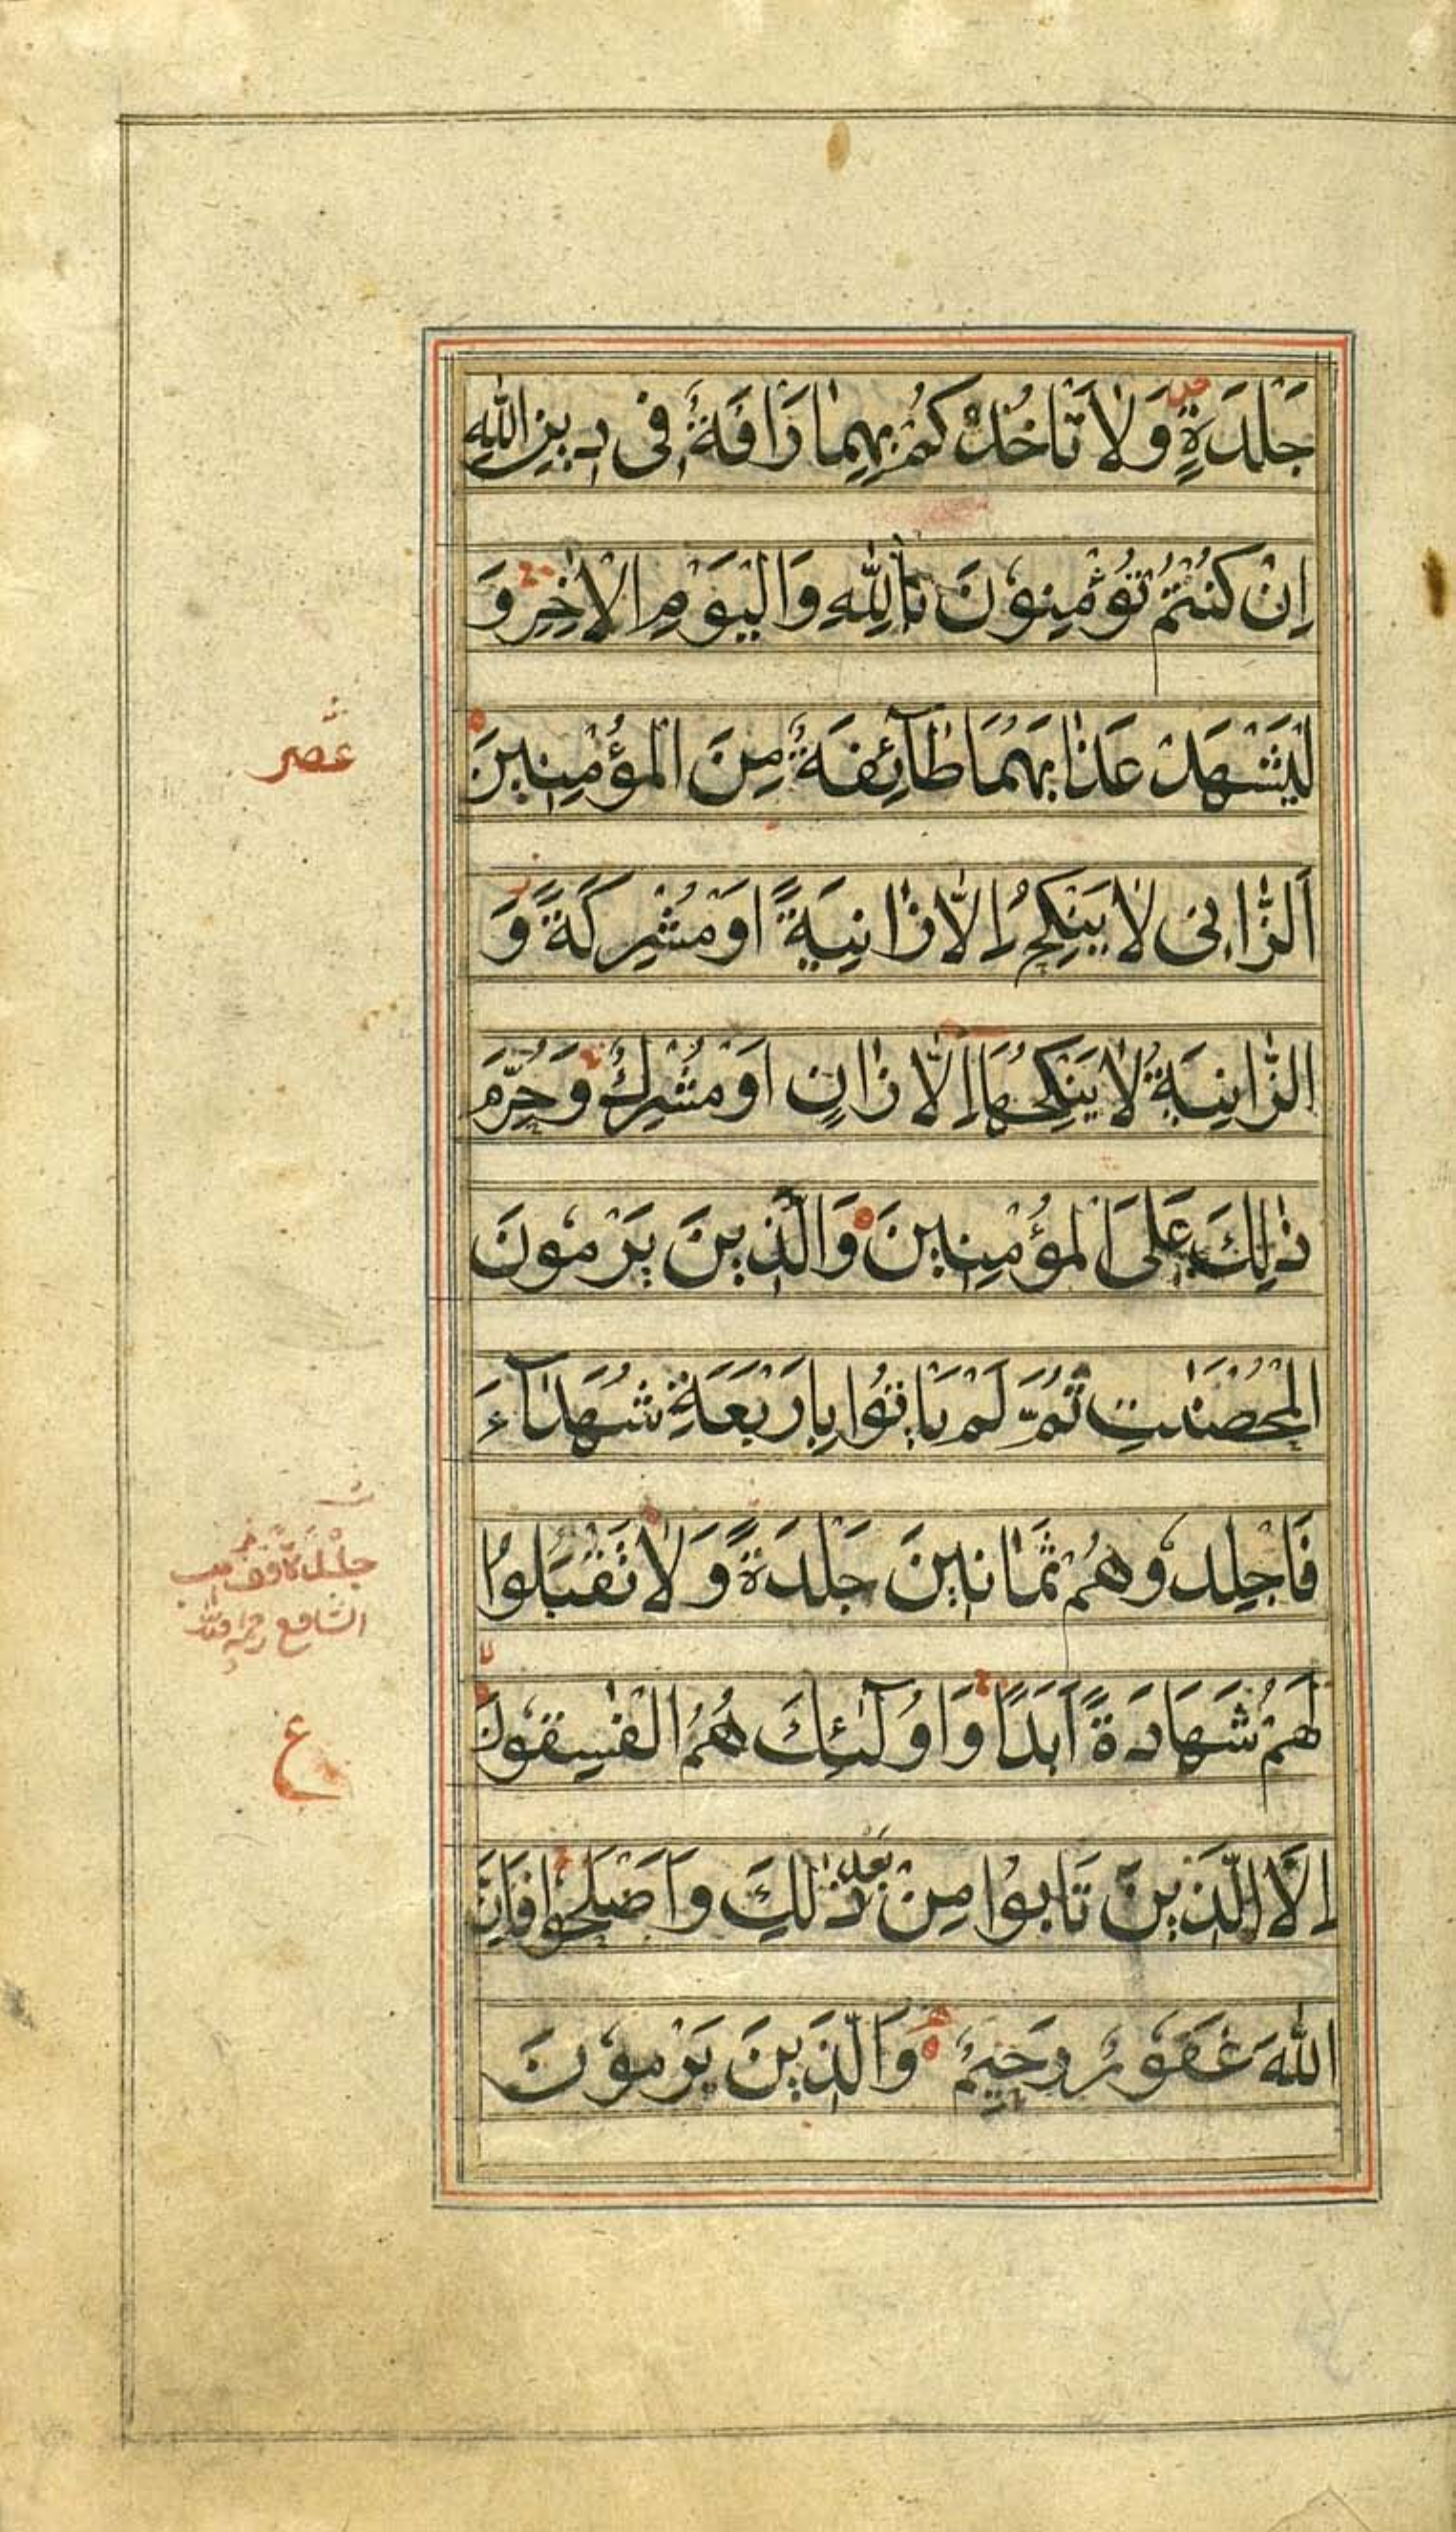 جَلْدَةٍ وَلَا تَاْخُذْكُمْ بِهِمَا رَاْفَةٌ فِى دِينِ اللّٰهِ
اِنْ كُنْتُمْ تُؤْمِنُوْنَ بِاللّٰهِ وَالْيَوْمِ الْاٰخِرِ وَ
لْيَشْهَدْ عَذَابَهُمَا طَآئِفَةٌ مِنَ الْمُؤْمِنِينَ
اَلزَّانِى لَا يَنْكِحُ اِلَّا زَانِيَةً اَوْ مُشْرِكَةً وَ
الزَّانِيَةُ لَا يَنْكِحُهَا اِلَّا زَانٍ اَوْ مُشْرِكٌ وَحُرِّمَ
ذٰلِكَ عَلَى الْمُؤْمِنِينَ وَالَّذِينَ يَرْمُونَ
الْمُحْصَنٰتِ ثُمَّ لَمْ يَاْتُوا بِاَرْبَعَةِ شُهَدَآءَ
فَاجْلِدُوهُمْ ثَمَانِينَ جَلْدَةً وَلَا تَقْبَلُوا
لَهُمْ شَهَادَةً اَبَدًا وَاُولٰٓئِكَ هُمُ الْفٰسِقُونَ
اِلَّا الَّذِينَ تَابُوا مِنْ بَعْدِ ذٰلِكَ وَاَصْلَحُوا فَاِنَّ
اللّٰهَ غَفُورٌ رَحِيمٌ وَالَّذِينَ يَرْمُوْنَ
عشر
جلدة وقف
الشافع
ع